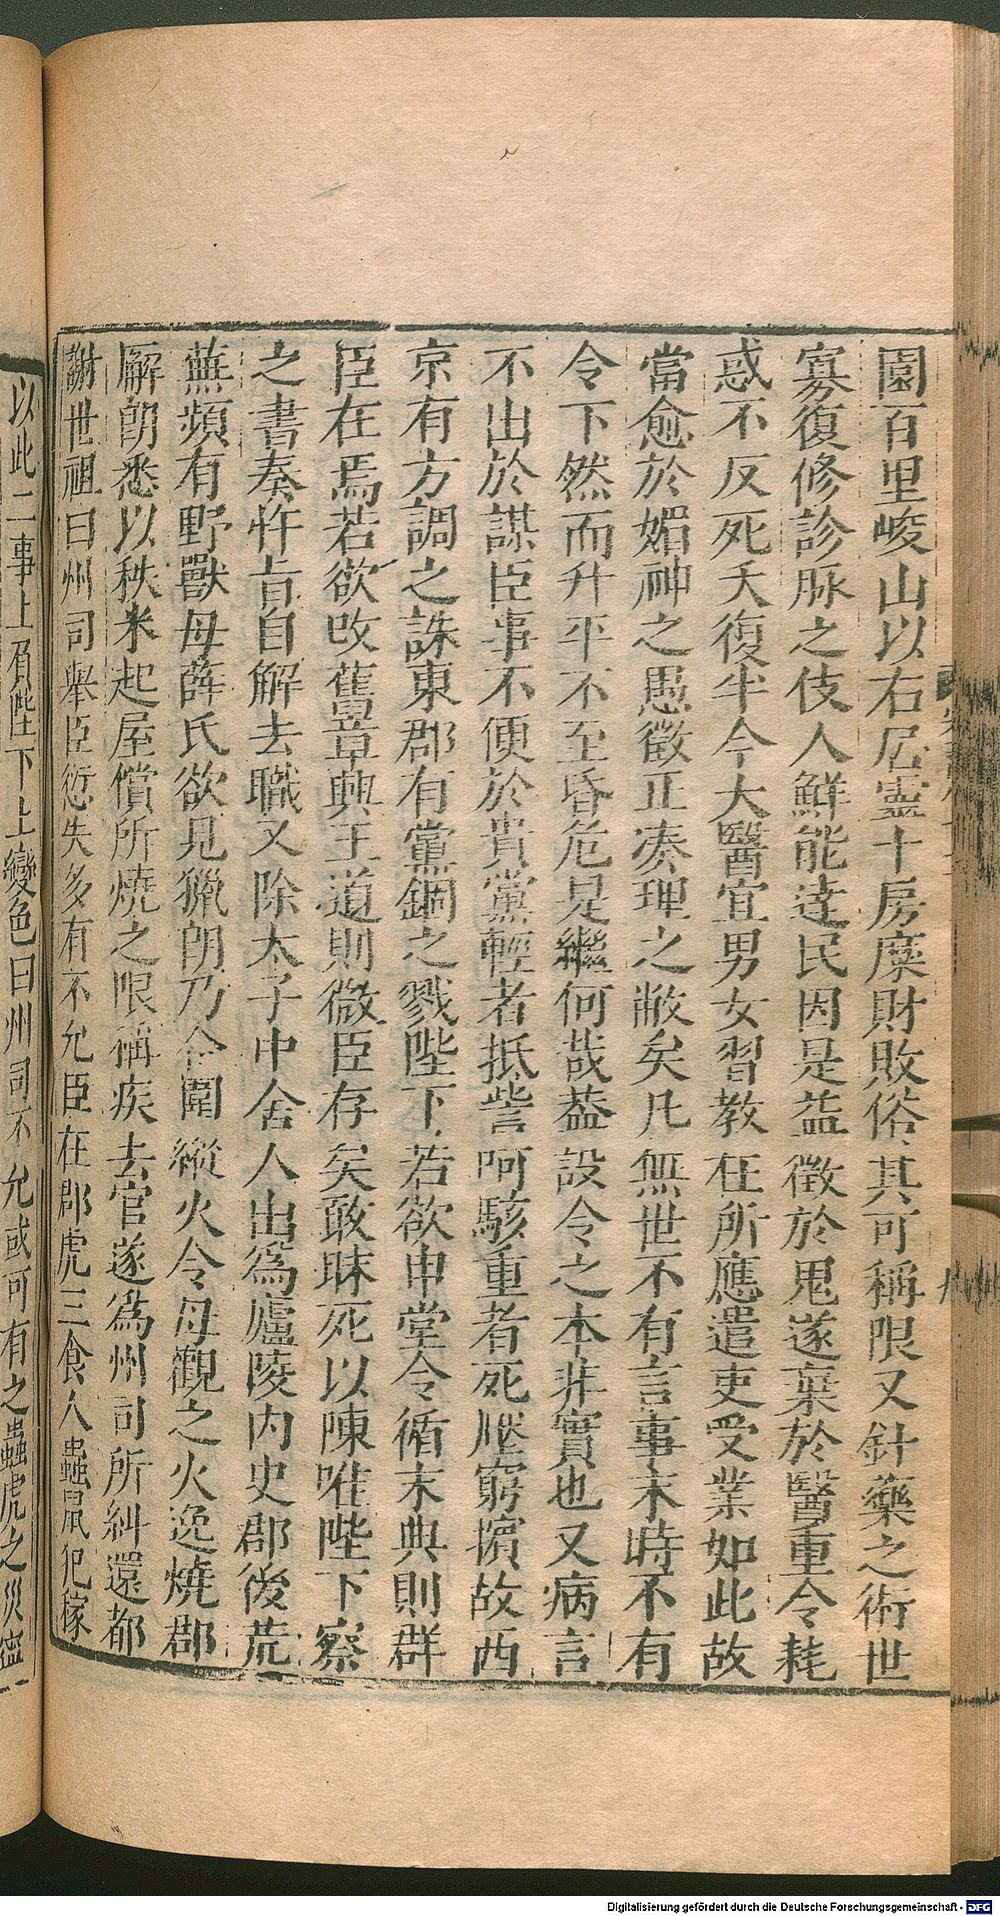 園百里峻山以右居靈十房糜財敗俗其可稱限又針藥之術世
寡復修診脉之伎人鮮能達民因是益徵於鬼遂棄於醫重令耗
惑不反死夭復半今大醫宜男女習教在所應遣吏受業如此故
當愈於媚神之愚徵正湊理之敝矣凡無世不有言事末時不有
令下然而升平不至昏危是繼何哉葢設令之本非實也又病言
不出於謀臣事不便於貴黨輕者抵訾呵駭重者死壓窮擯故西
京有方調之誅東郡有黨錮之戮陛下若欲申堂令循末典則群
臣在焉若欲攺舊章興王道則微臣存矣敢昧死以陳唯陛下察
之書奏忤旨自解去職又除太子中舍人出爲廬陵內史郡後荒
蕪頻有野獸母薛氏欲見獵朗乃合圍縱火令母觀之火逸燒郡
廨朗悉以秩米起屋償所燒之限稱疾去官遂爲州司所糾還都
謝世祖曰州司舉臣愆失多有不允臣在郡虎三食人蟲鼠犯稼
以此二事上負陛下上變色曰州司不允或可有之蟲虎之災寧
Digitalisierung gefördert durch die Deutsche Forschungsgemeinschaft - DFG